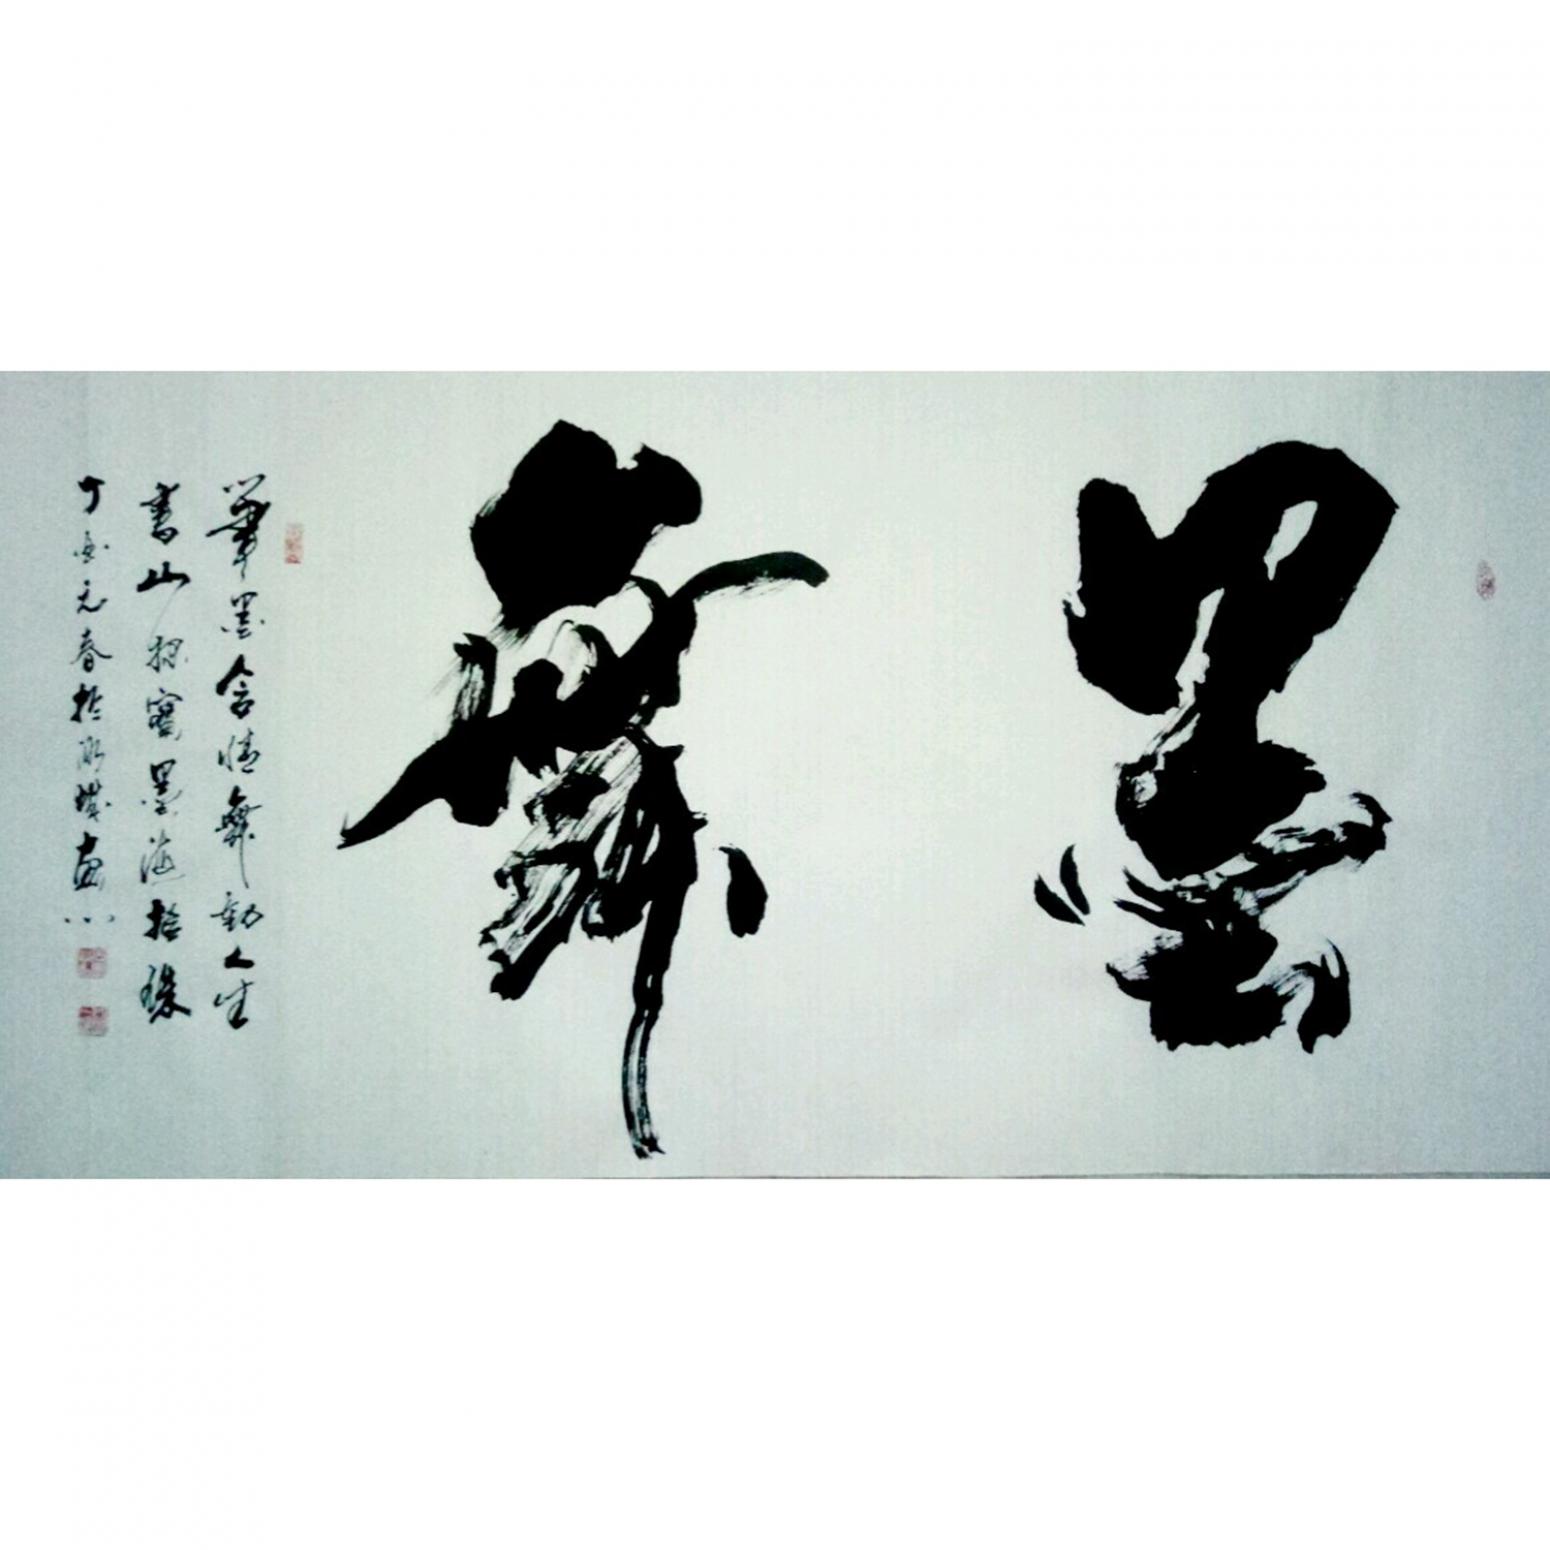 墨舞
筆墨含情舞動人生
書山探寶墨海拾珠
丁酉元春於